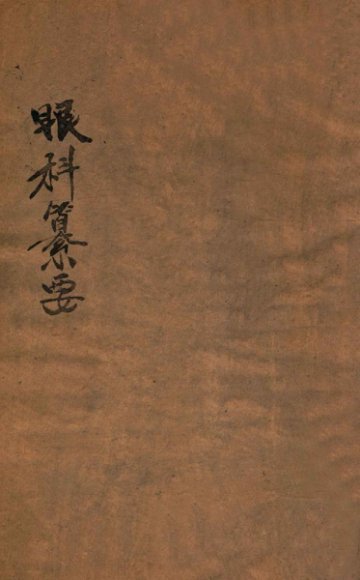 眼科纂要